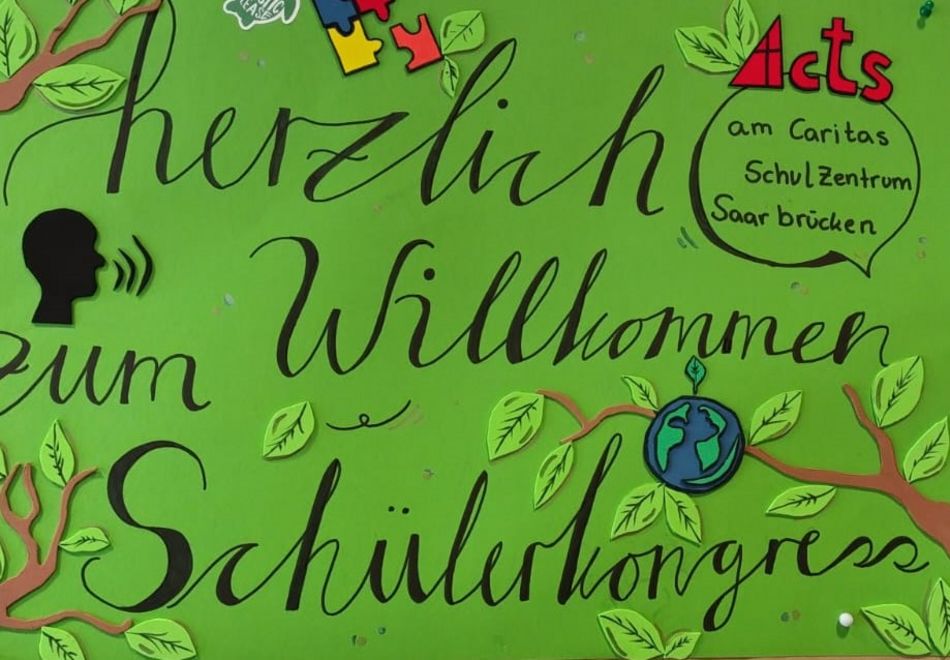 herzlich
Acts
am Caritas
SchulZentrum
Saarbrücken
Willkommen
zum
Schülerkongress